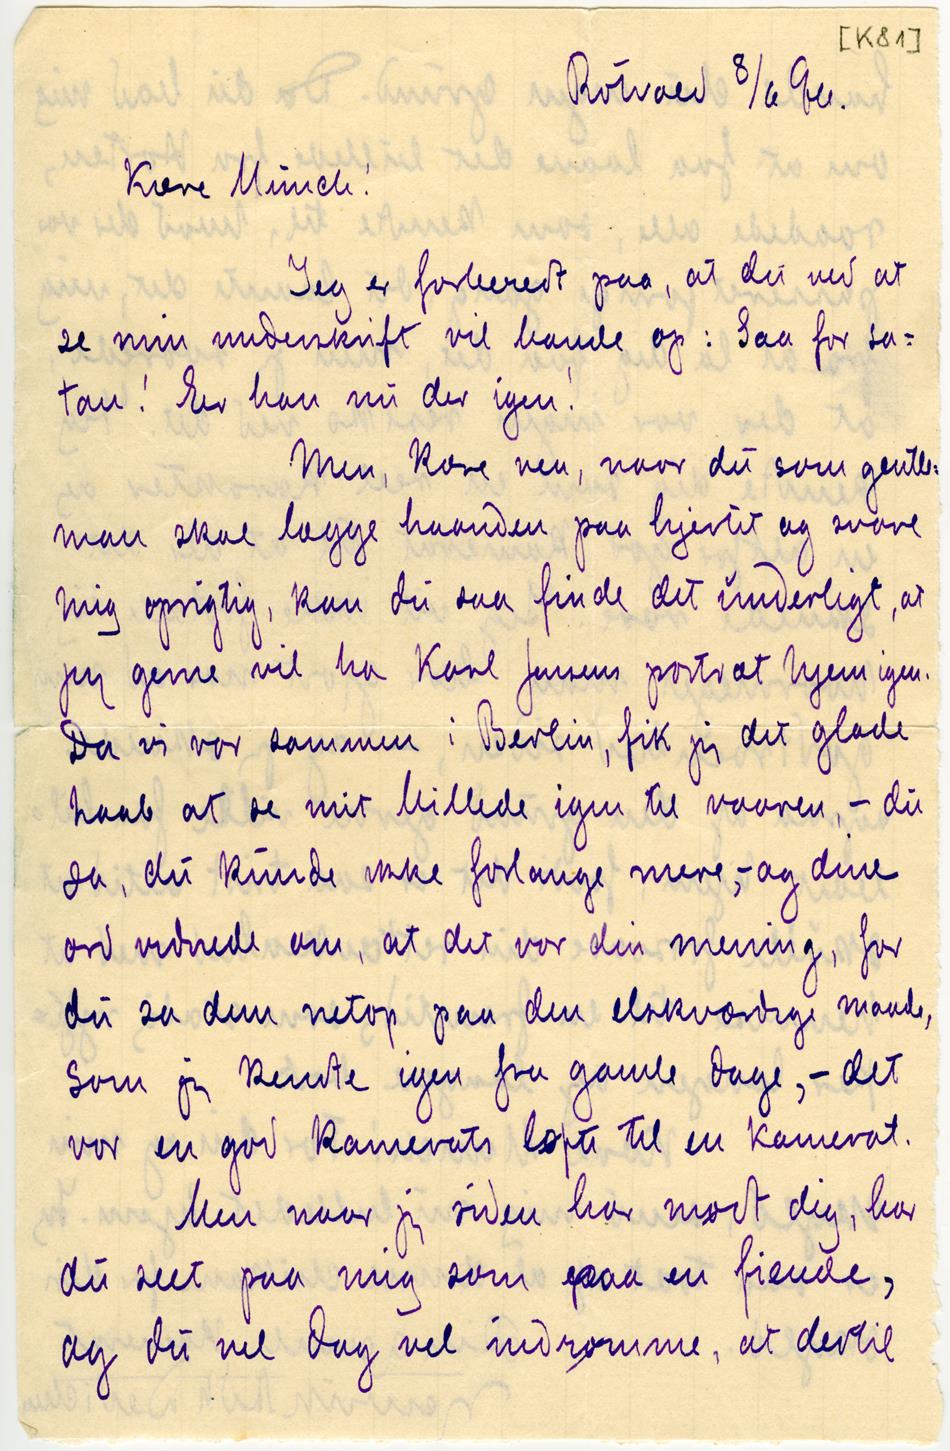 [K81]
Rötvoed 8/6
Kære Münch!
Jeg er forberedt paa, at du ved at
se min underskrift vil bande op: Saa for sa=
tan! Er han nu der igen!
Men, kære ven, naar du som gentle=
man skal lægge haanden paa hjertet og svare
mig oprigtig, kan du saa finde det ünderligt, at
jeg gerne vil ha Karl Jensens portræt hjem igen.
Da vi var sammen i Berlin, fik jeg det glade
haab at se mit billede igen til vaaren, – du
sa, du künde ikke forlange mere, – og dine
ord vidnede om, at det var din mening, for
du sa dem netop paa den elskværdige maade,
som jeg kendte igen fra gamle dage, – det
var en god kamerats løfte til en kamerat.
Men naar jeg siden har mødt dig, har
du seet paa mig som paa en fiende,
og du vil dog vel indrømme, at dertil